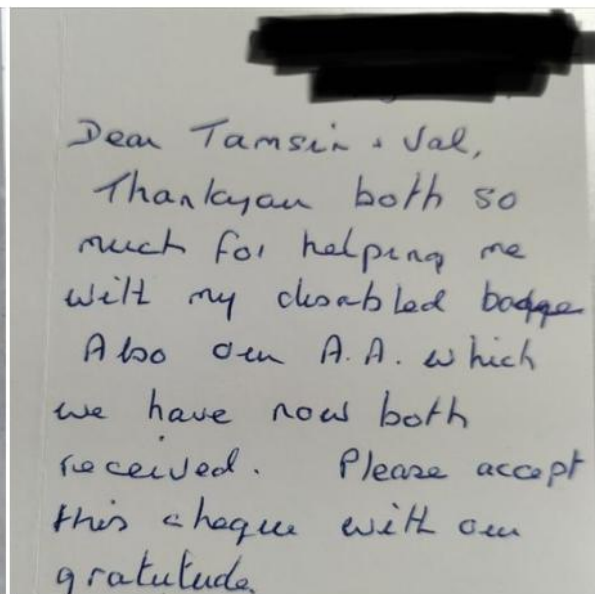 Dear Tamsin + Val,
Thankyou both so
much for helping me
with my disabled badge
Also our A.A. which
we have now both
received. Please accept
this cheque with our
gratutude.